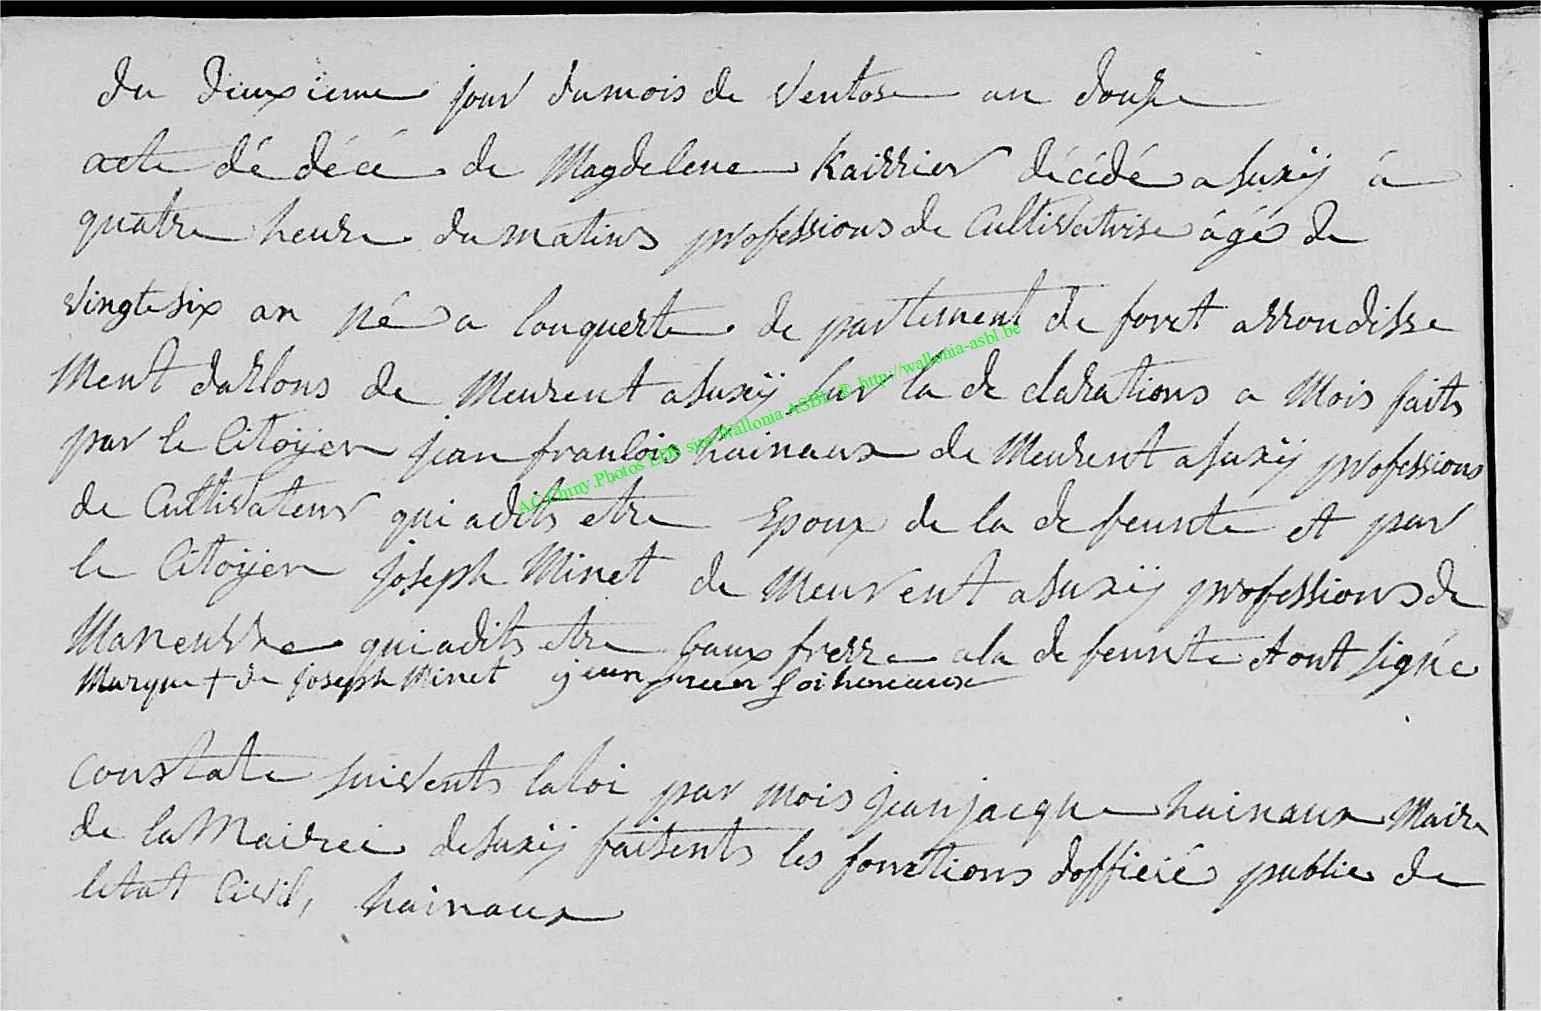 du deuxieme jour du mois de Ventose an douze
acte dé décé de Magdelene Kairrier décédé a Suxÿ á
quatre heure du matins professions de Cultivatrise âgé de
vingt six an né a louquerte de partement de foret arrondisse
Ment darlons de Meurent a Suxÿ sur la de clarations a Mois faits
par le Citoÿen jean franCois hainaux de Meurent a Suxÿ professions
de Cultivateur qui a dits etre Epoux de la de feunte et par
le Citoÿen joseph Minet de Meurent a Suxÿ professions de
Maneuvre qui a dits etre baux frerre a la de feunte et ont signé
Marque + de joseph Minet jean fran soi heneaux
Constate suivents la loi par mois jean jacque hainaux Maire
de la Mairiei de Suxÿ faisents les fonctions dofficié public de
letat Civil, hainaux
AC Chiny Photos LDB sur Wallonia ASBL ® http://wallonia-asbl.be